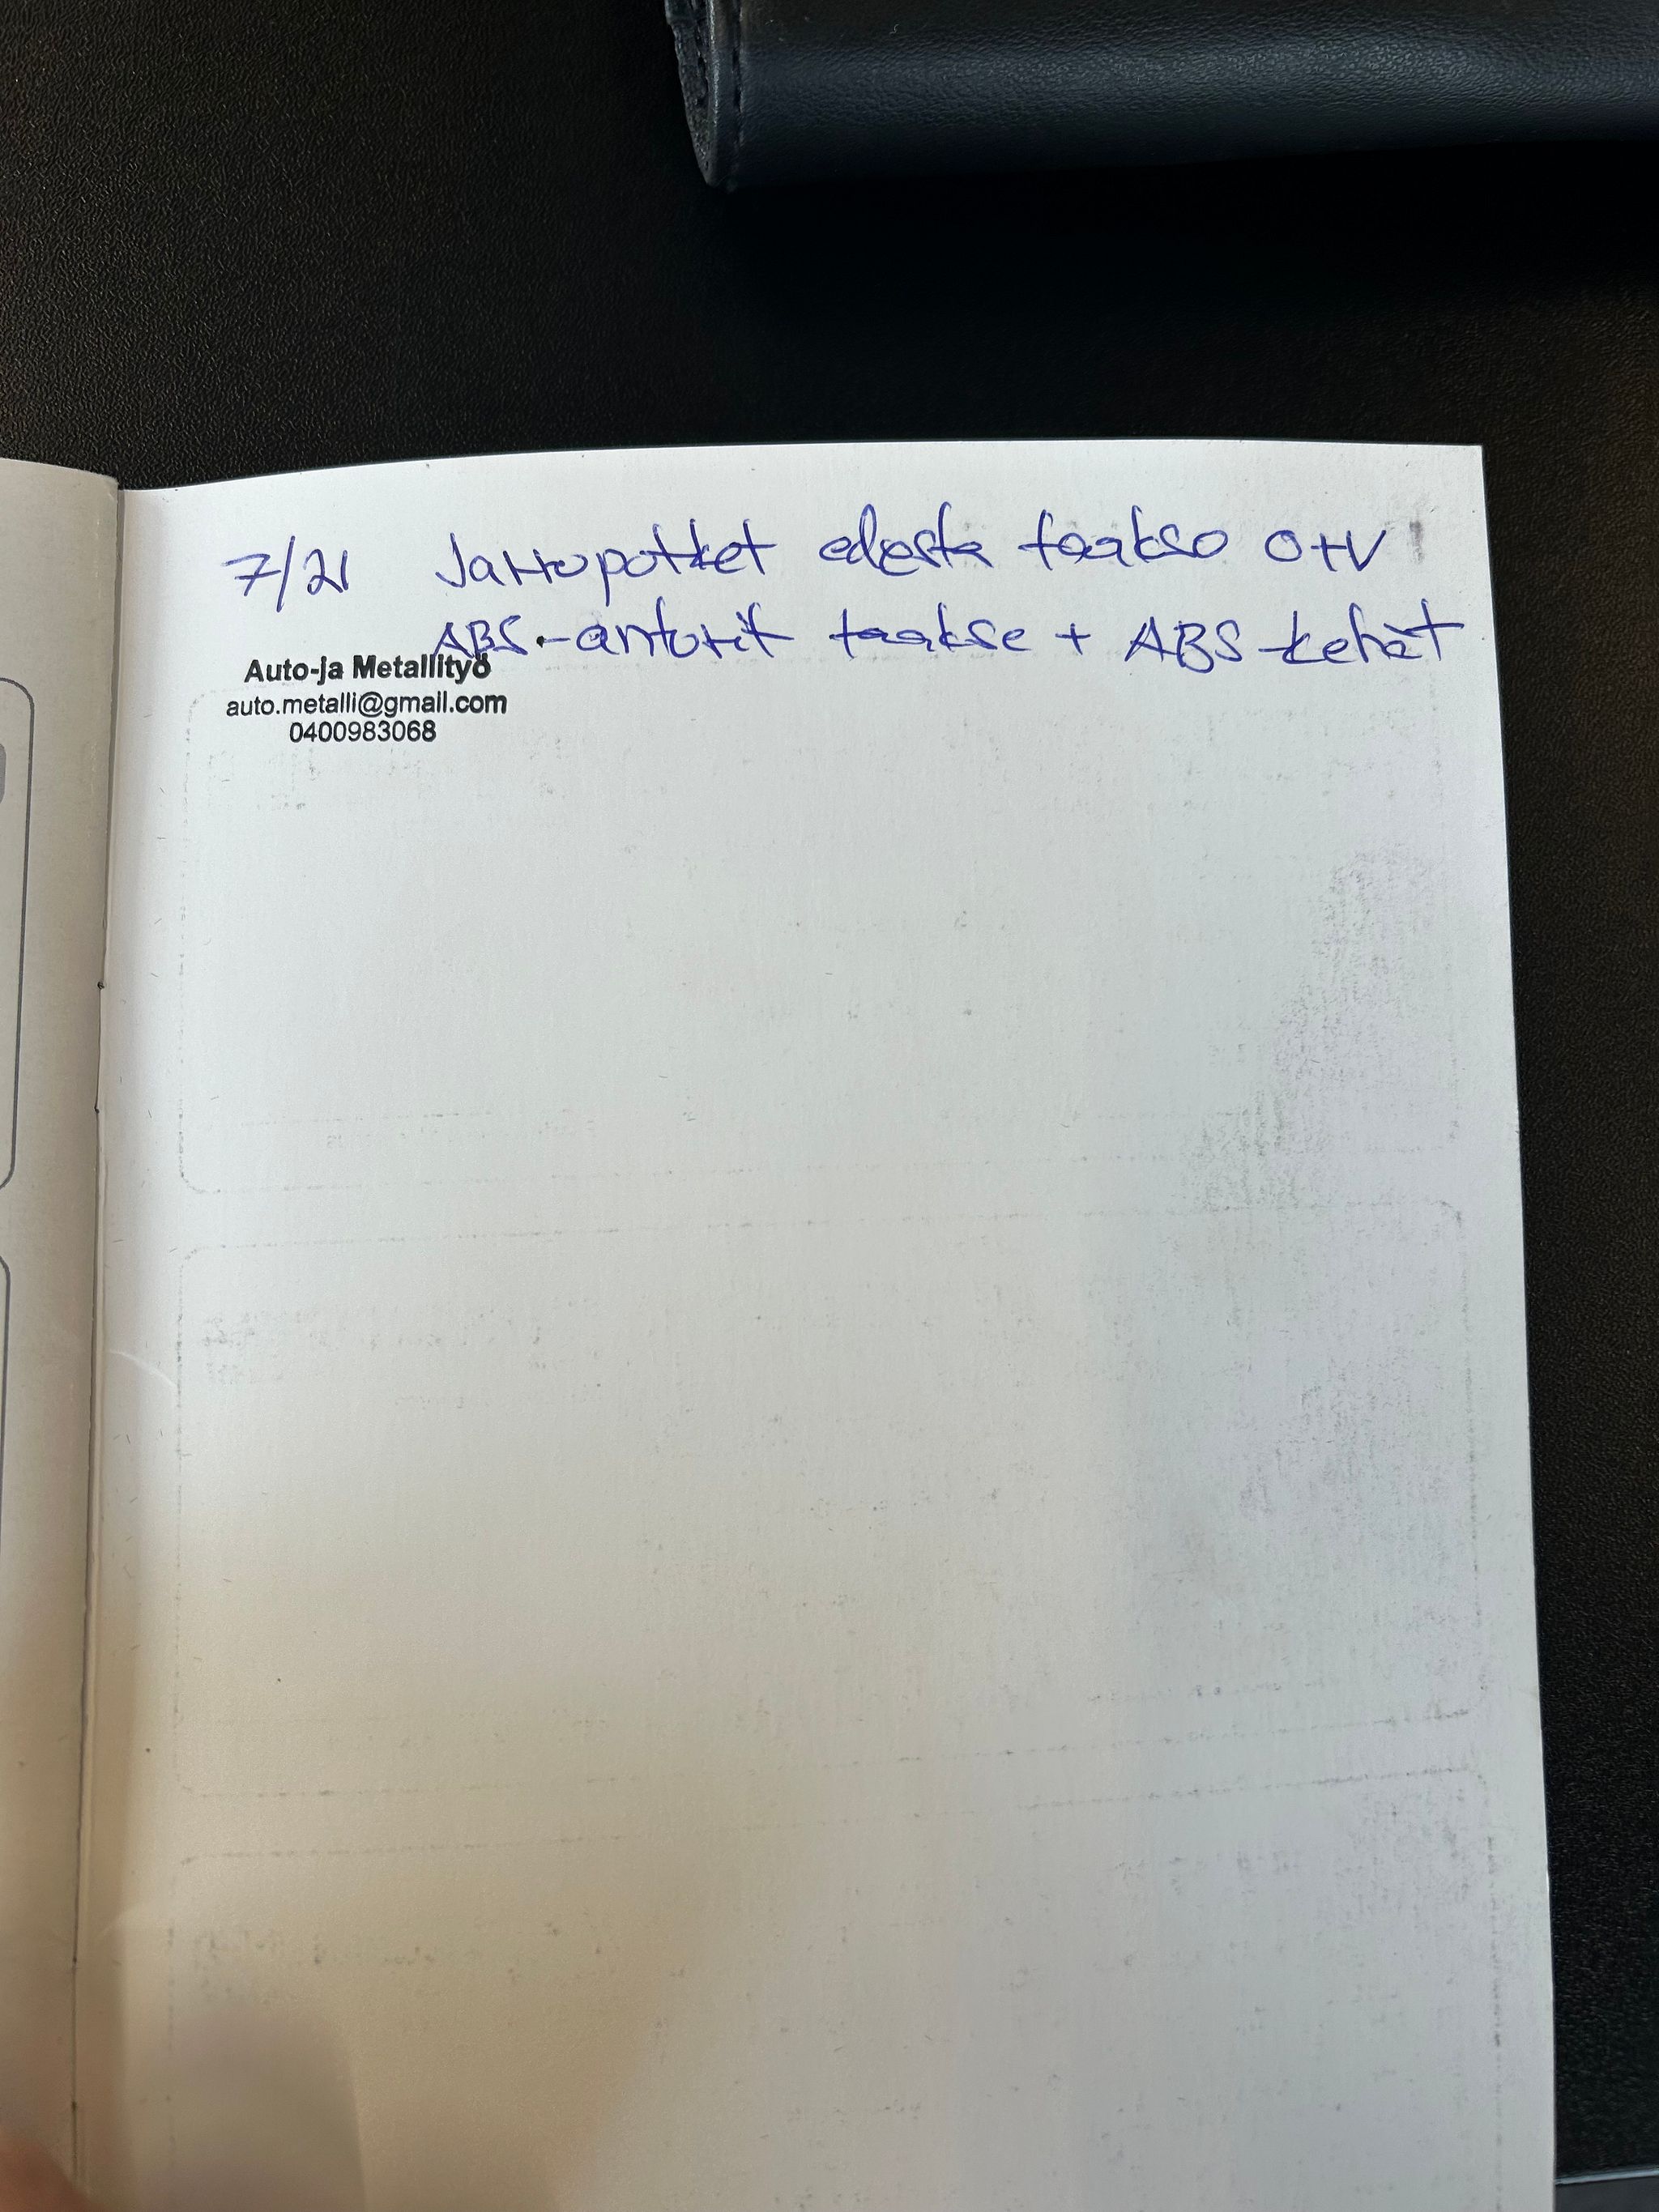 7/21 Jarrupotket edestä taakse O+V
ABS-anturit taakse + ABS-kehät
Auto-ja Metallityö
auto.metalli@gmail.com
0400983068